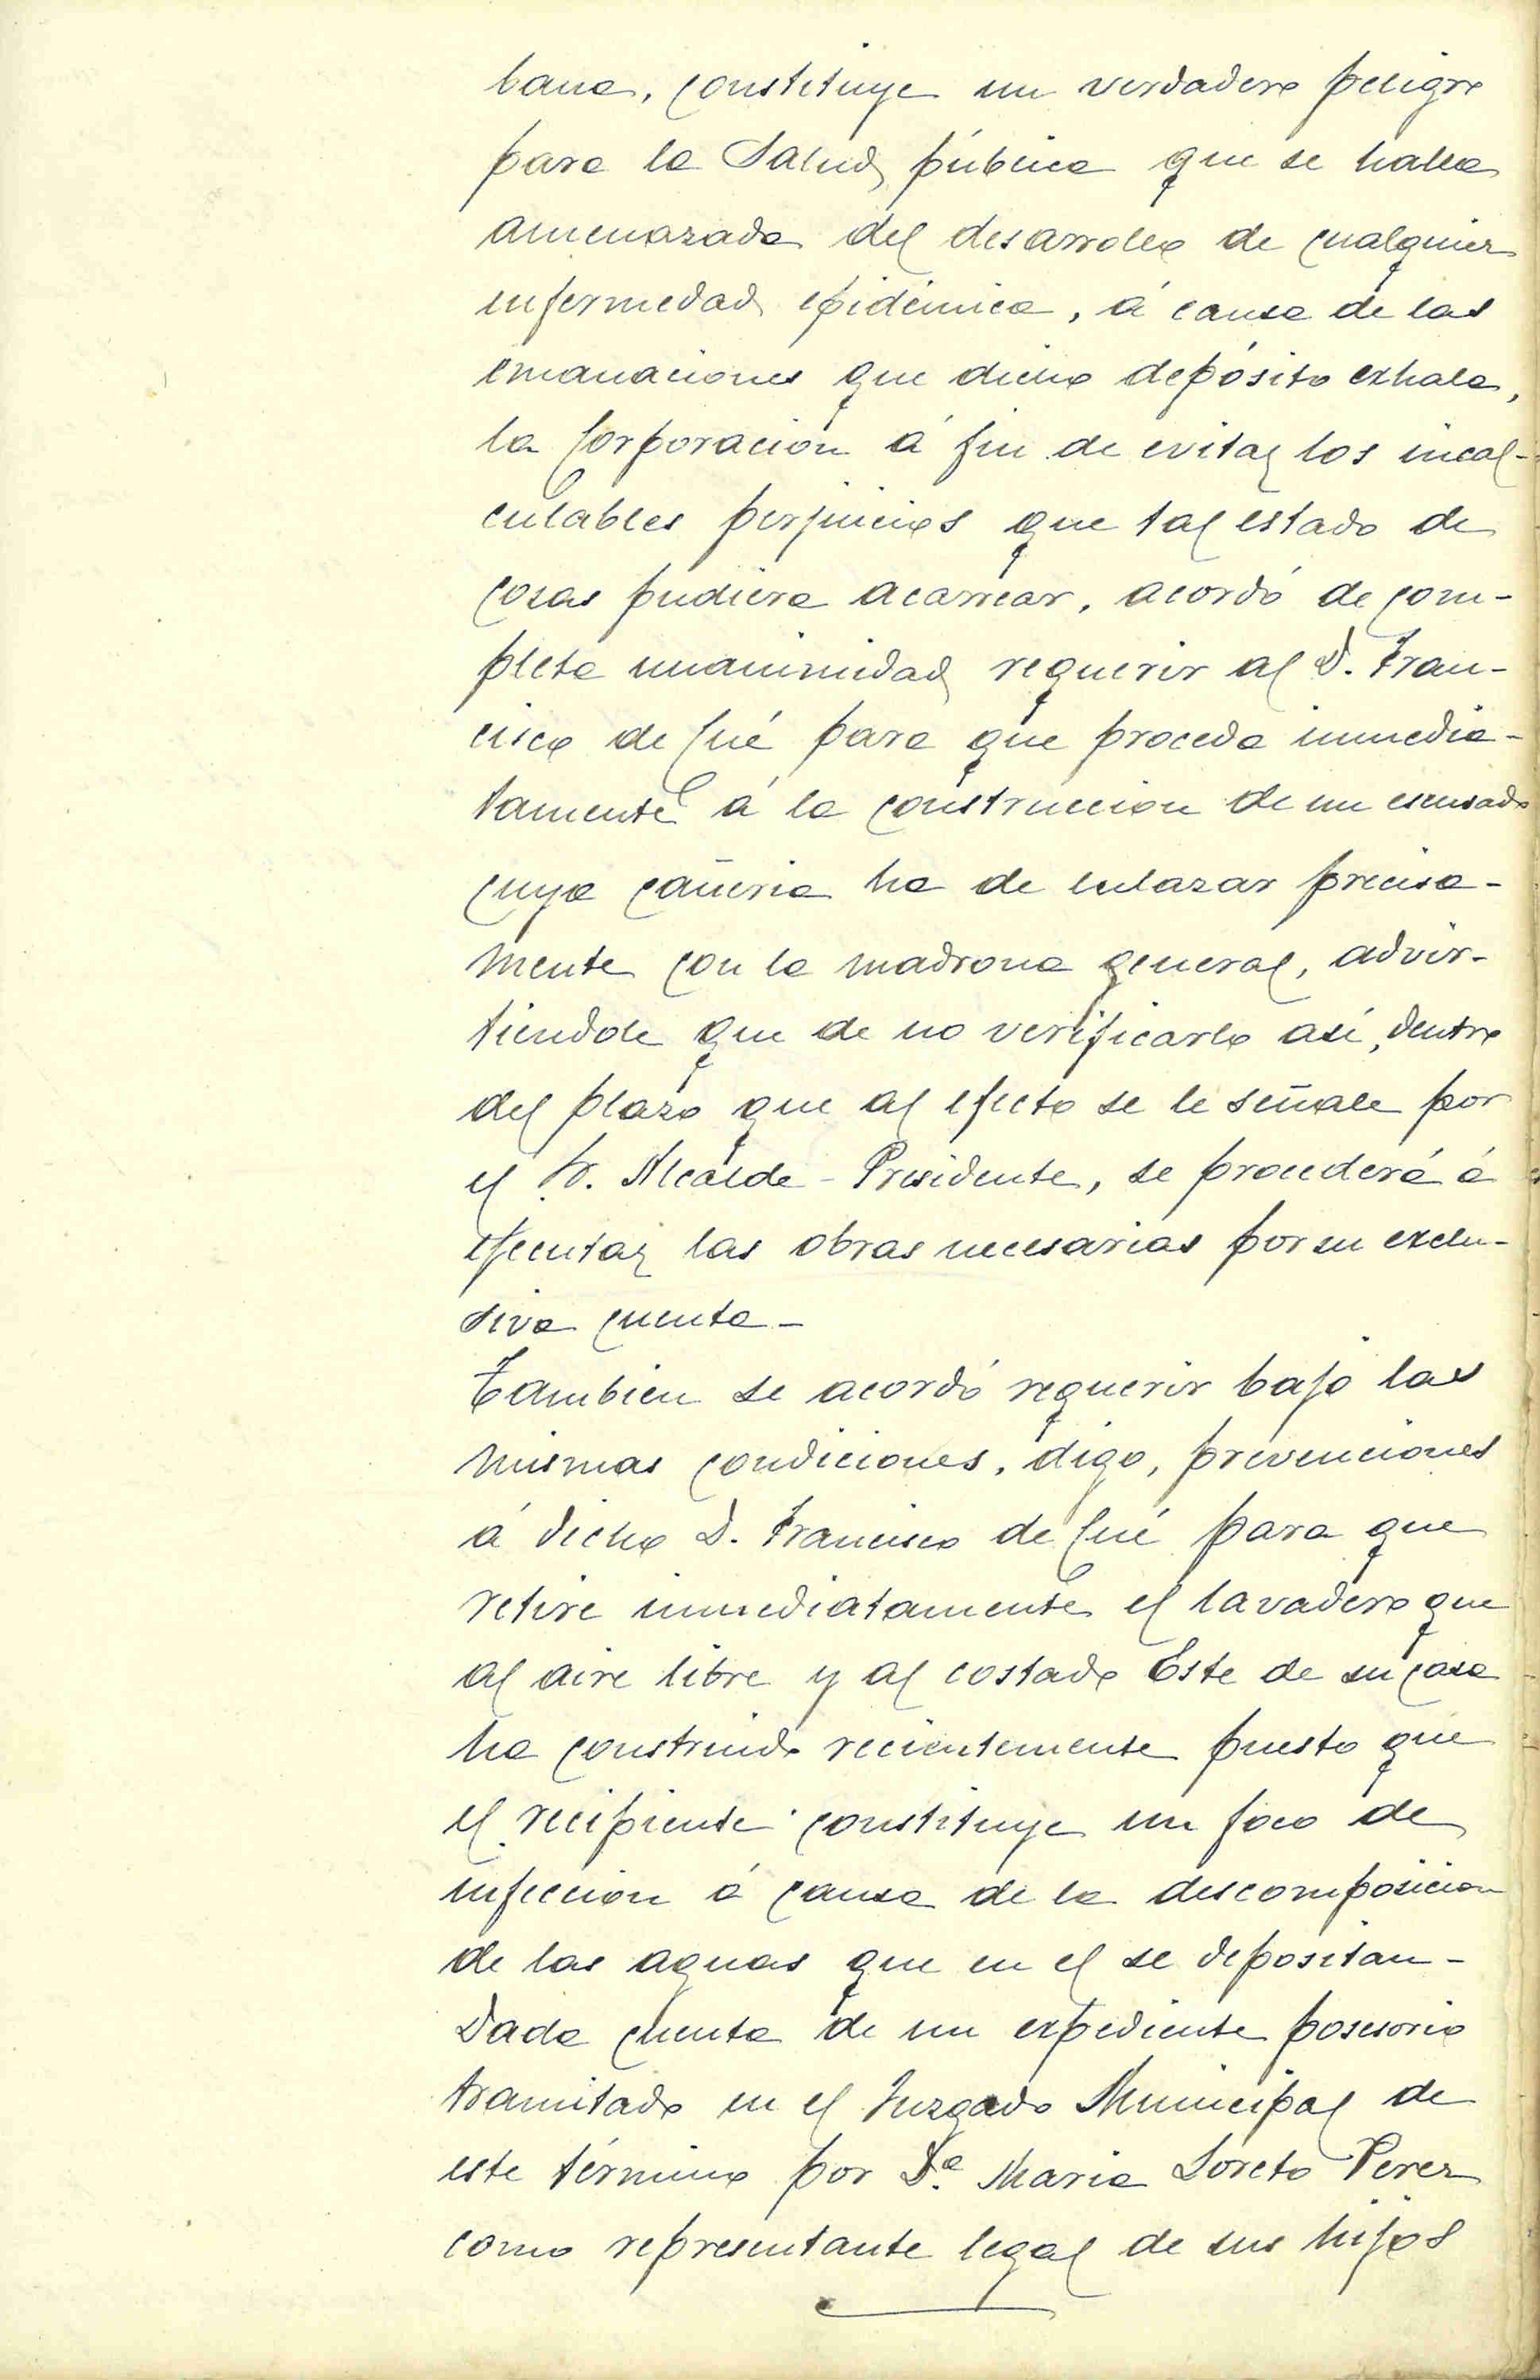 bana, constituye un verdadero peligro
para la Salud pública que se halla
amenazada del desarrollo de cualquier
enfermedad epidémica, á causa de las
emanaciones que dicho depósito exhala,
la Corporación á fin de evitar los incal-
culables perjuicios que tal estado de
cosas pudiera acarrear, acordó de com-
pleta unanimidad requerir al D. Fran-
cisco de Cué para que proceda inmedia-
tamente á la construccion de un escusado
cuya cañeria ha de enlazar precisa-
mente con la madrona general, advir-
tiendole que de no verificarlo asi, dentro
del plazo que al efecto se le señale por
el Sr. Alcalde-Presidente, se procederá á
ejecutar las obras necesarias por su exclu-
siva cuenta-
Tambien se acordó requerir bajo las
mismas condiciones, digo, prevenciones
á dicho D. Francisco de Cué para que
retire inmediatamente el lavadero que
al aire libre y al costado Este de su casa
ha construido recientemente puesto que
el recipiente constituye un foco de
infeccion á causa de la descomposicion
de las aguas que en el se depositan-
Dada cuenta de un expediente posesorio
tramitado en el Juzgado Municipal de
este término por Dª. Maria Loreto Perez
como representante legal de sus hijos